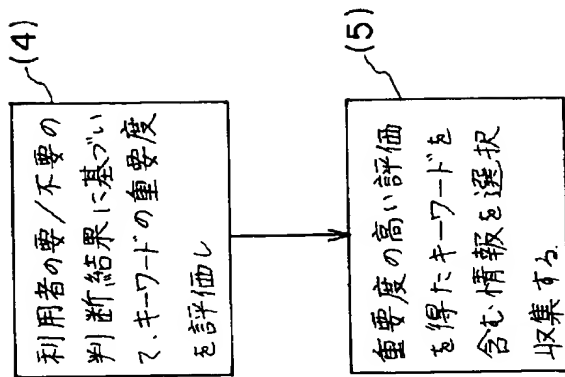 (4)
利用者の要/不要の
判断結果に基づい
て、キーワードの重要度
を評価し
(5)
重要度の高い評価
を得たキーワードを
含む情報を選択
収集する